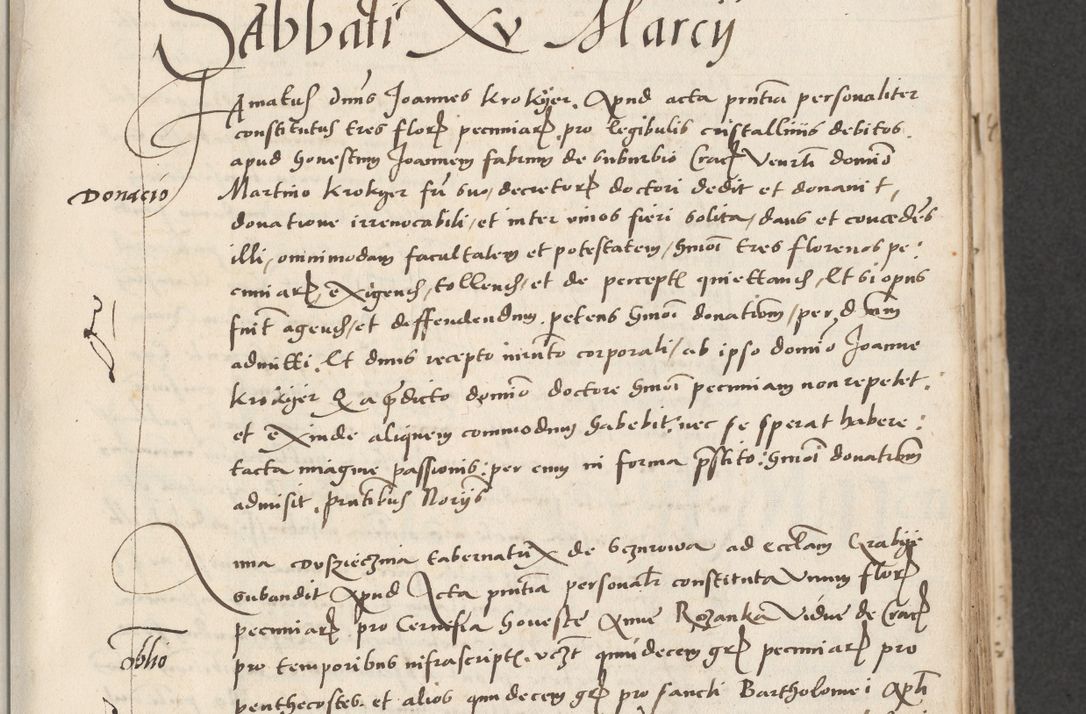 Sabbati Xv Marcij
Famatus dnus Joannes krokyer. Apud acta pntia personaliter
constitutus tres flor pecuniar pro legibulis cristallinis debitos
apud honestum Joannem fabrum de suburbio Crac venrli domio
Donacio
Martino krokyer fri suo, decretor doctori dedit et donavit,
donatione irrevocabili, et inter vivos fieri solita, dans et concedes
illi, omnimodam facultatem et potestatem, hmoi tres florenos pe:
cuniar, exigend, tollend, et de percept quiettand, Et si opus
fuit agend, et deffendendum. petens hmoi donationem, per d vrm
admitti. Et dnus recepto iurnto corporali, ab ipso domio Joanne
krokyer Q a pdicto domio doctore hmoi pecuniam non repetet.
et exinde aliquem commodum habebit: nec se sperat habere:
tacta imagine passionis: per eum in forma pstito: hmoi donationem
admisit. pntibus Norijs
Anna tabernatrix de ad ecclam Crabye
subandit Apud Acta pntia personalr constituta Unum flor
pecuniar pro Cervisia honeste Anne Rozanka vidue de Crac
oblio
pro temporibus infrascript. vczt quindecem gr pecuniar pro
penthecostes. et alios quindecem gr pro sancti Bartholomei Apli